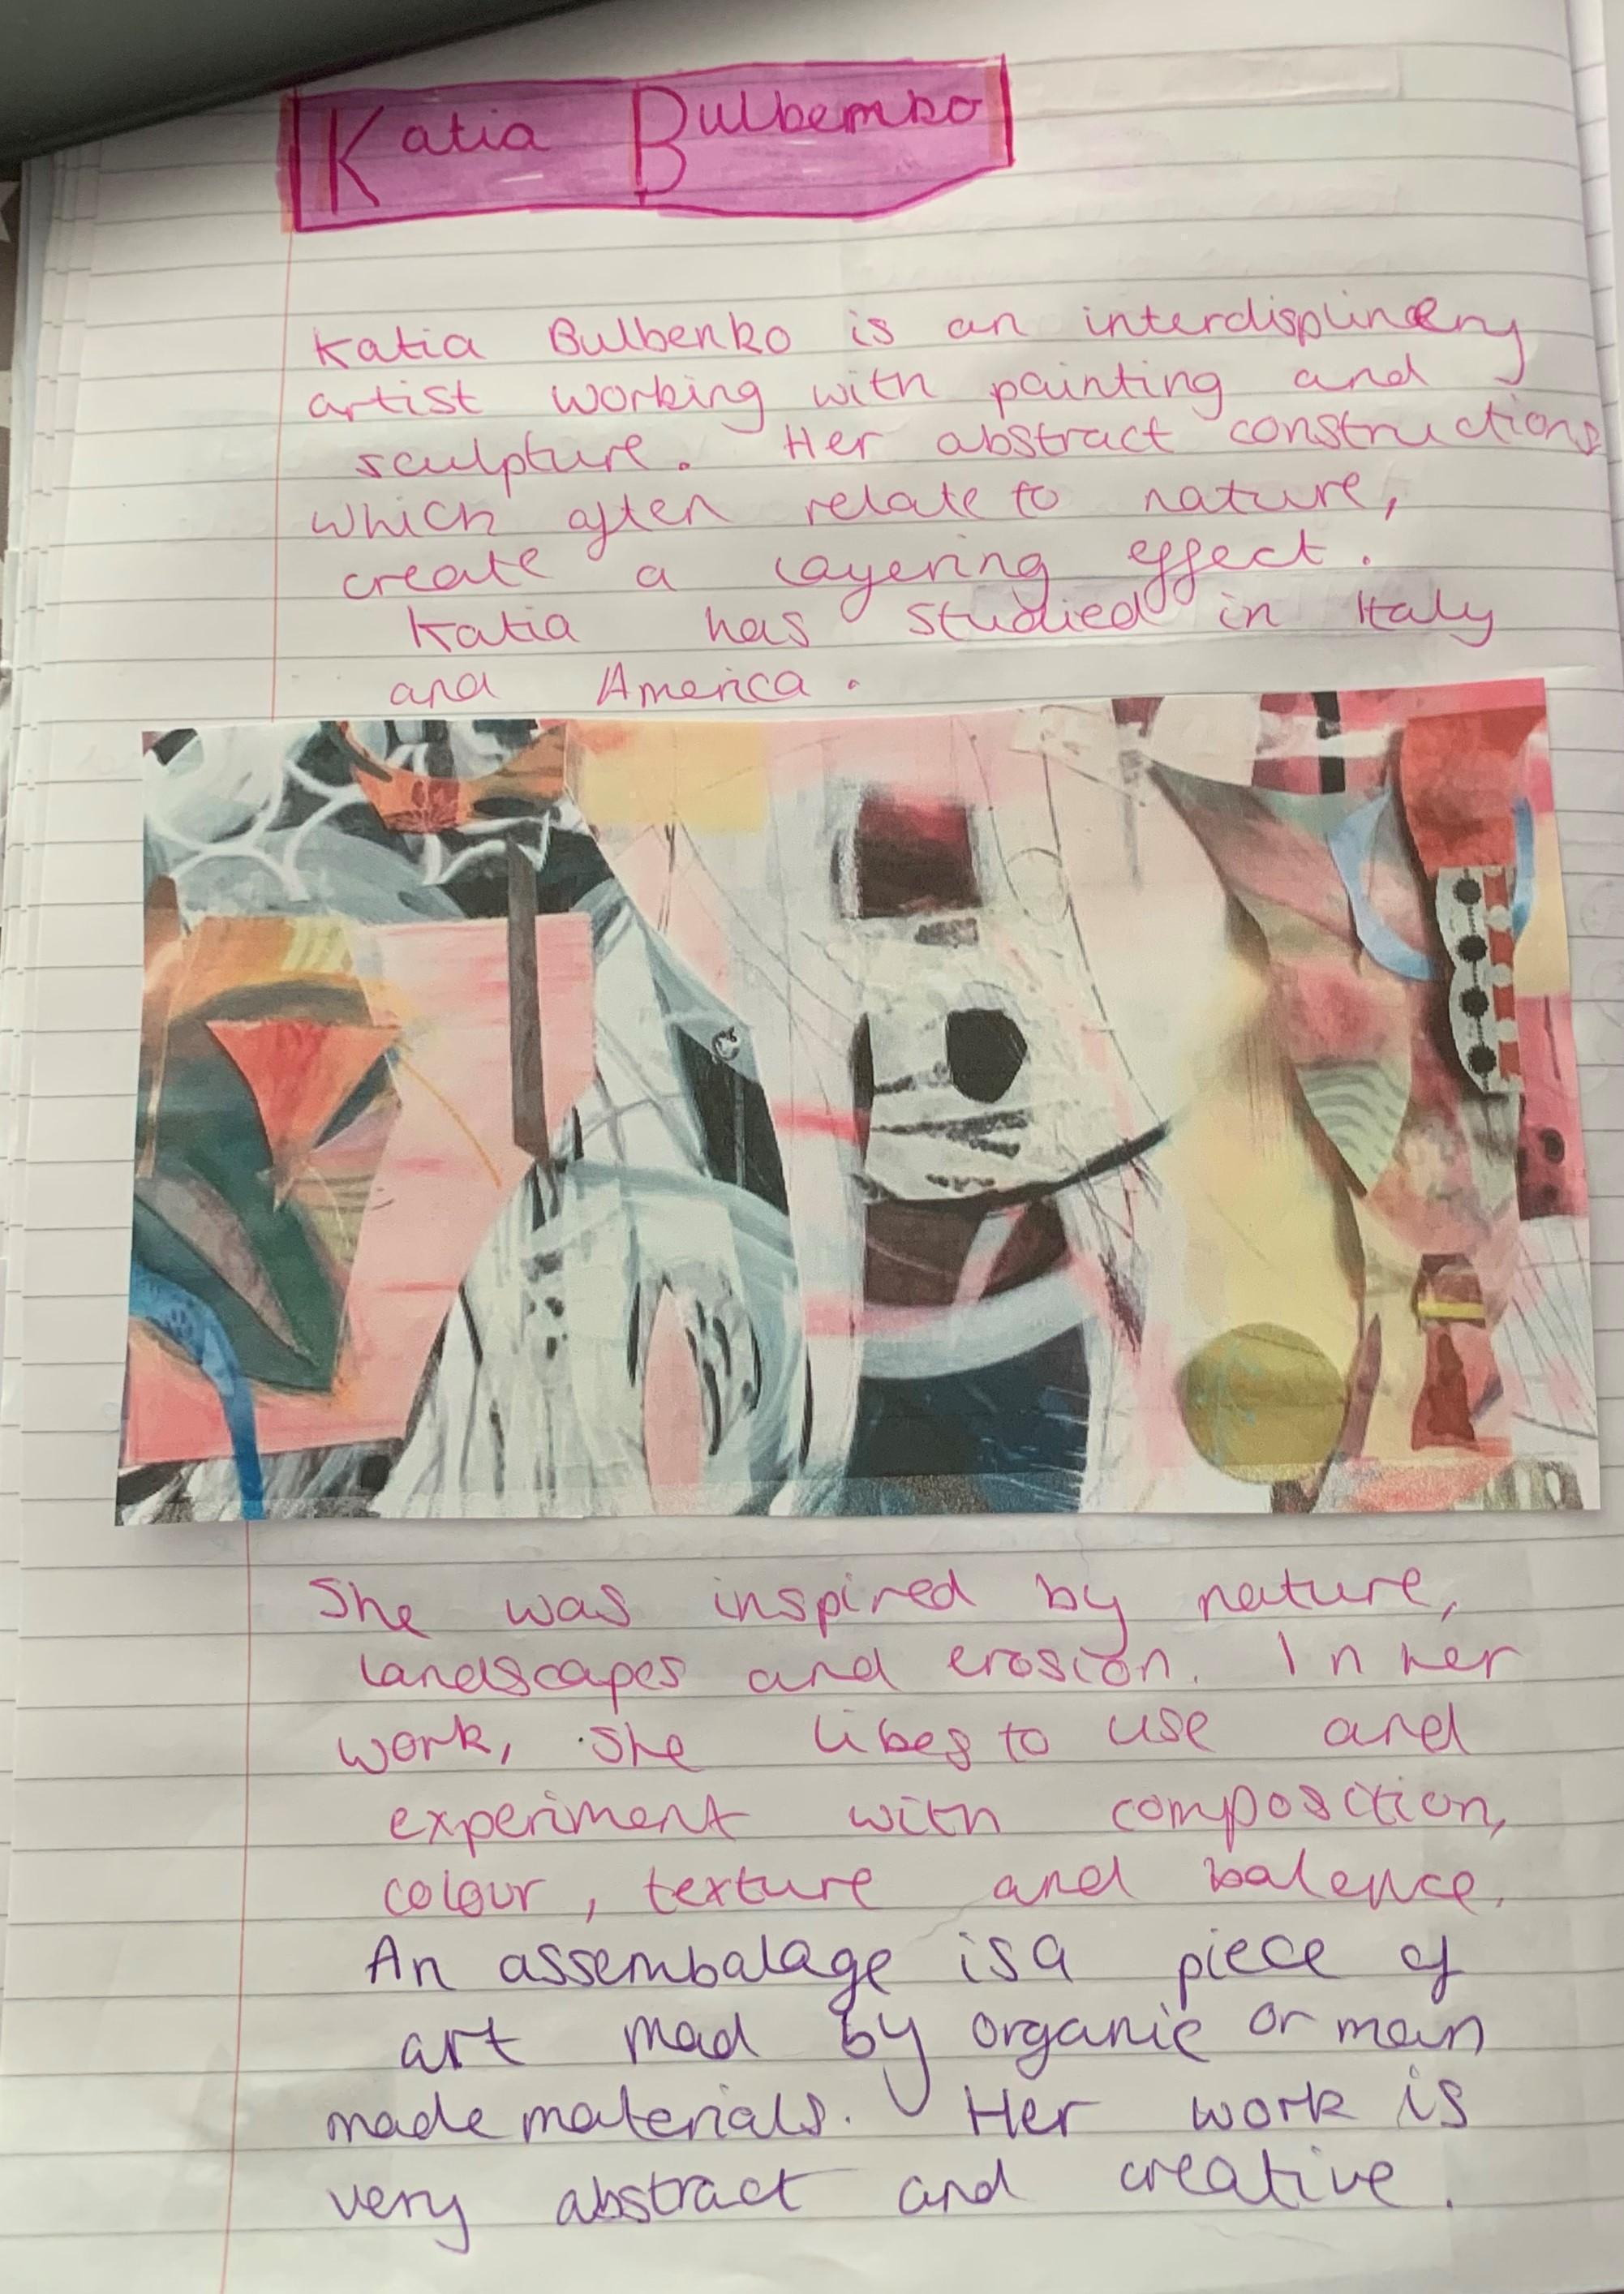 Katia Bulbemko
Katia Bulbenko is an interdisplinery
artist working with painting and
sculpture. Her abstract constructions
which often relate to nature,
create a layering effect.
Katia has studied in Italy
and America.
She was inspired by nature,
landscapes and erosion. In her
work, she likes to use and
experiment with composition,
colour, texture and balence.
An assembalage is a piece of
art mad by organic or man
made materials. Her work is
very abstract and creative.